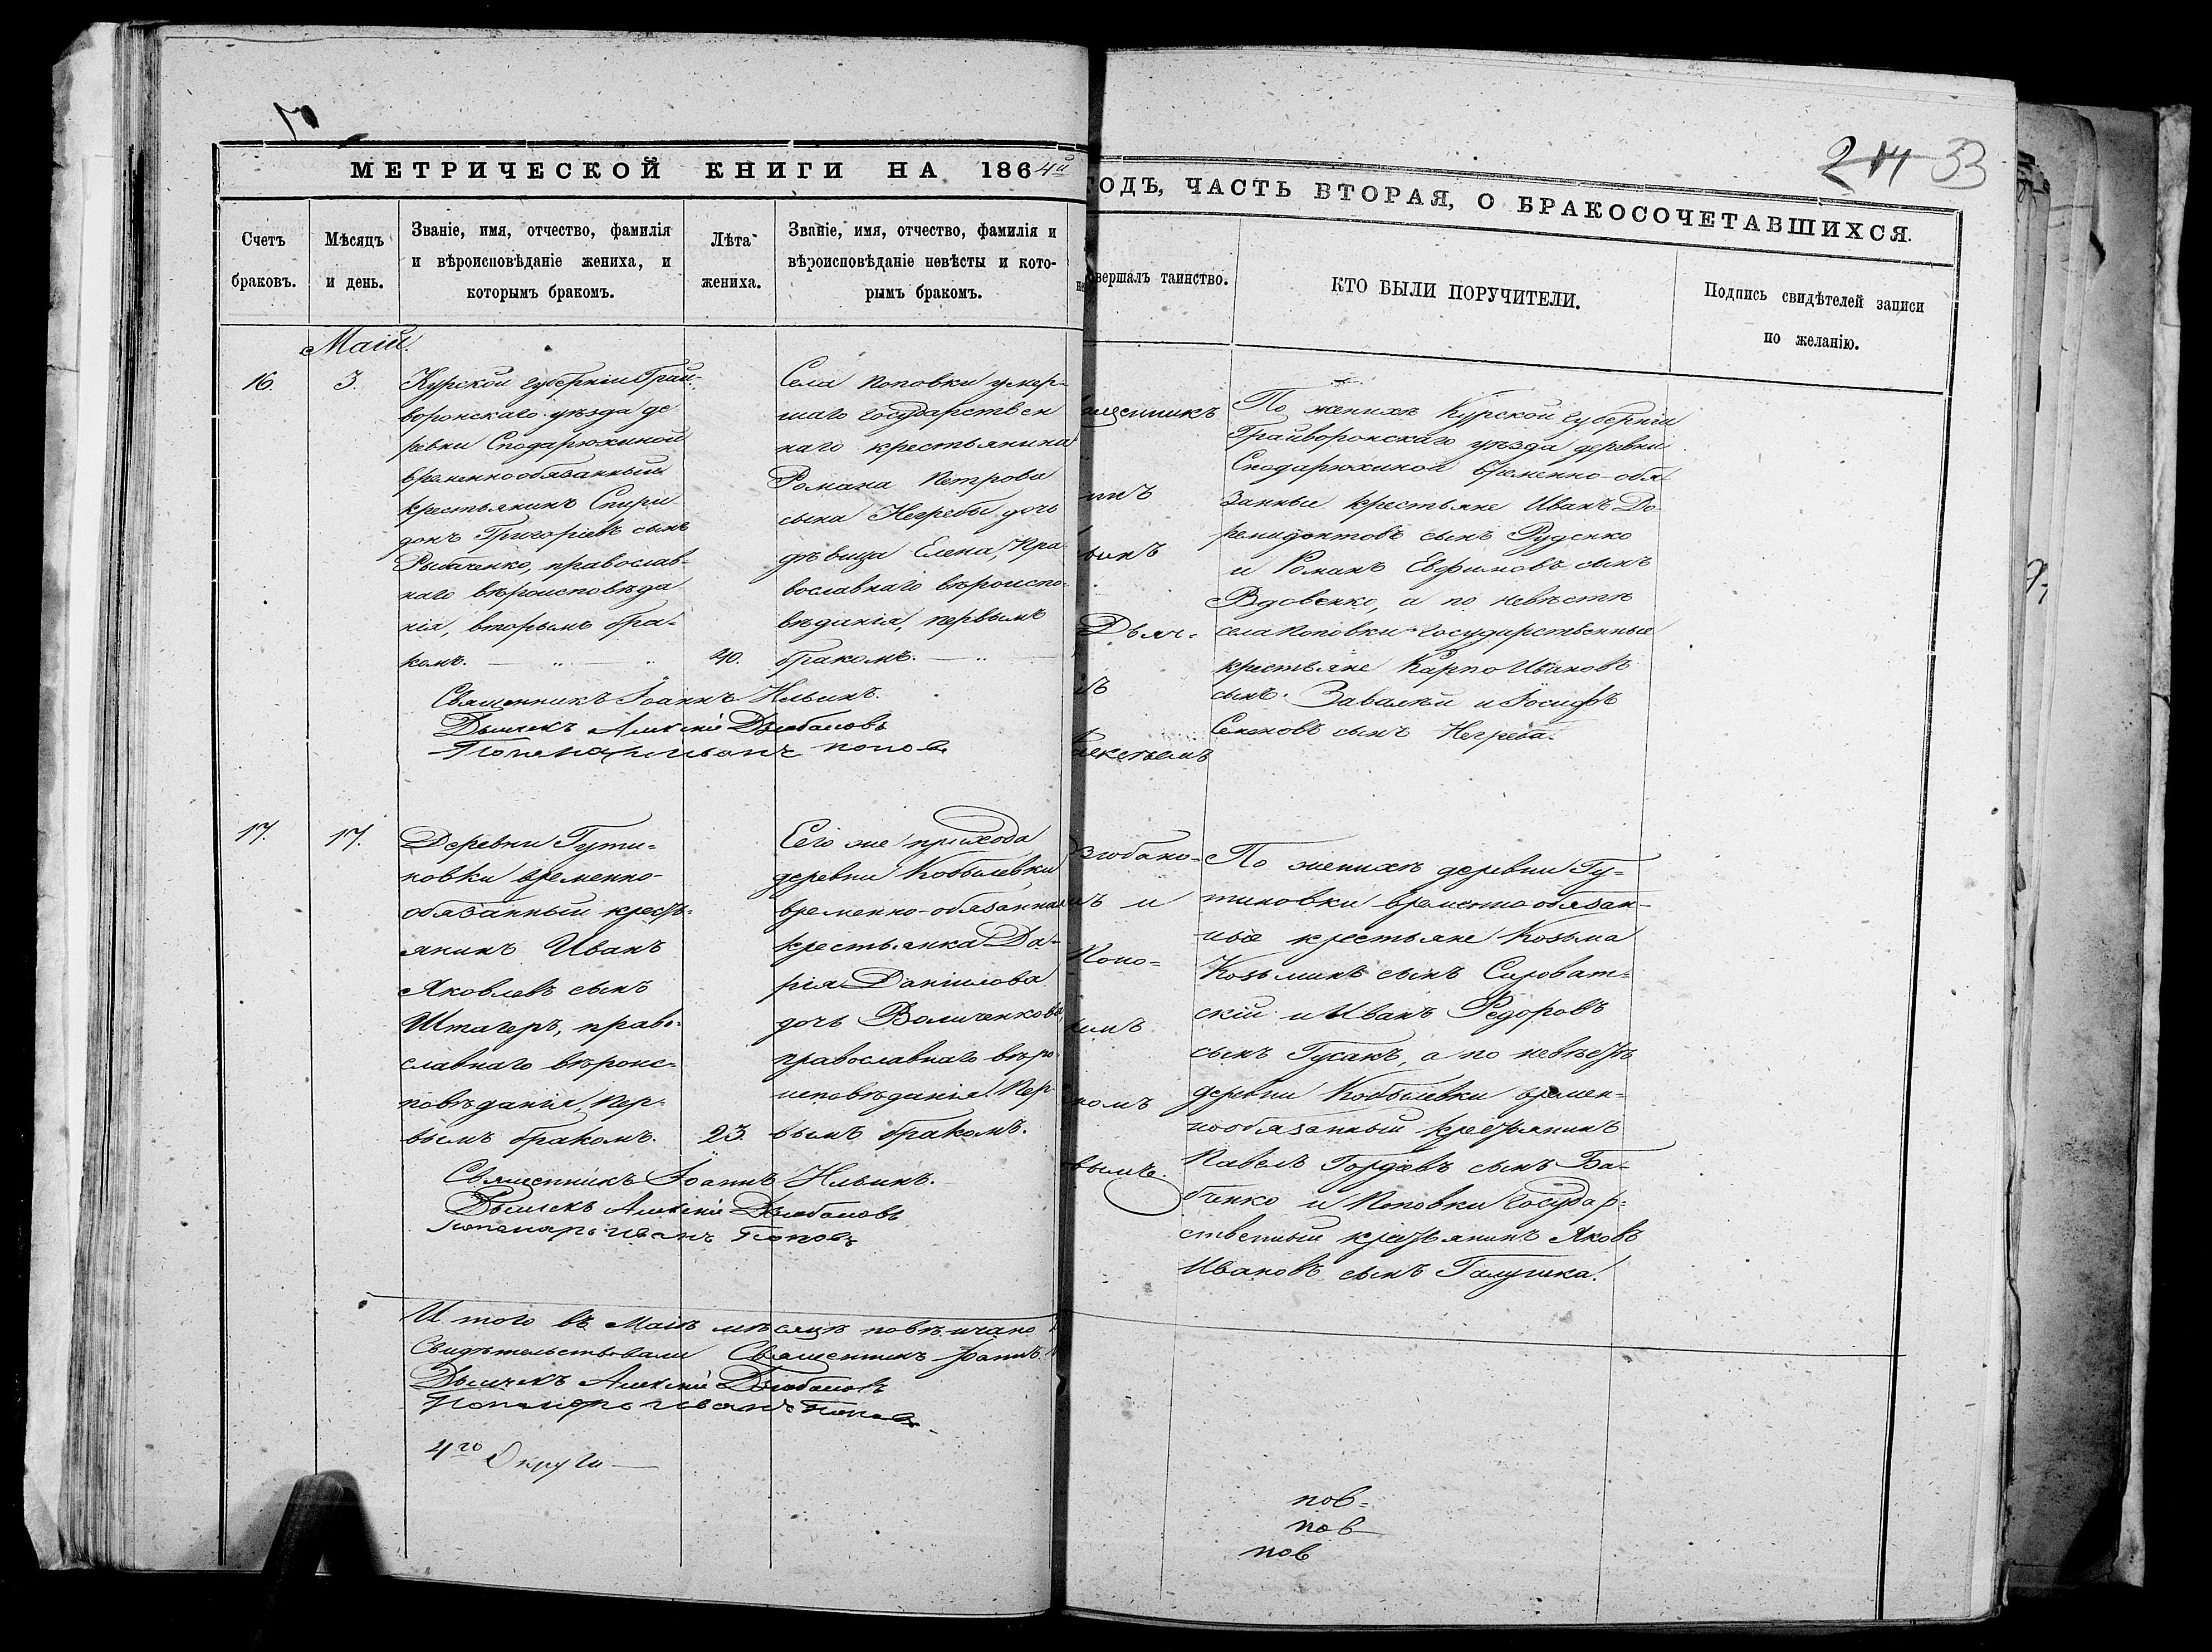 214 33
МЕТРИЧЕСКОЙ КНИГИ НА 1864й
ГОДЪ, ЧАСТЬ ВТОРАЯ, О БРАКОСОЧЕТАВШИХСЯ.
Счетъ
браковъ.
Мѣсяцъ
и день.
Званіе, имя, отчество, фамилія
и вѣроисповѣданіе жениха, и
которымъ бракомъ.
Лѣта
жениха.
Званіе, имя, отчество, фамилія и
вѣроисповѣданіе невѣсты и кото-
рымъ бракомъ.
вершалъ таинство.
КТО БЫЛИ ПОРУЧИТЕЛИ.
Подпись свидѣтелей записи
по желанію.
Маій.
16.
3.
Курской губерніи Грай-
воронскаго уѣзда де
ревни Сподарюхиной
временнообязанный
крестьянинъ Спири
донъ Григоріевъ сынъ
Рыбаченко, православ-
наго вѣроисповѣда
нія, вторымъ бра-
комъ.
40.
Села Поповки умер-
шаго государствен
наго крестьянина
Романа Петрова
сына Негребы дочь
дѣвица Елена, Пра
вославнаго вѣроиспо-
вѣданія, первымъ
бракомъ.
Священникъ Іоаннъ Ильинъ.
Дьячекъ Алексій Дзюбановъ
Пономарь Иванъ Попов
ященникъ
инъ
винъ
Дьяч-
ъ
По женихѣ Курской губерніи
Грайворонскаго уѣзда деревни
Сподарюхиной временно-обя
занные крестьяне Иванъ До
ремидонтовъ сынъ Руденко
и Романъ Евфимовъ сынъ
Вдовенко, а по невѣстѣ
села Поповки государственные
крестьяне Карпо Ивановъ
сынъ Завалѣй и Іосифъ
Семеновъ сынъ Негреба.
17.
17.
Деревни Гути-
новки временно-
обязанный крест-
янинъ Иванъ
Яковлевъ сынъ
Штагеръ, право-
славнаго вѣроис-
повѣданія, Пер-
вымъ бракомъ.
23.
Сего же прихода
деревни Кобылевки
временно-обязанная
крестьянка Да-
рія Даніилова
дочь Величенкова,
православнаго вѣро
исповѣданія Пер-
вымъ бракомъ.
Священникъ Іоаннъ Ильинъ.
Дьячекъ Алексій Дзюбановъ
Пономарь Иванъ Поповъ
зюбано-
ъ и
Попо-
комъ
вымъ.
По женихѣ деревни Гу-
тиновки временнообязан-
ные крестьяне Козьма
Козьминъ сынъ Сыроват-
скій и Иванъ Федоровъ
сынъ Гусакъ, а по невѣстѣ
деревни Кобылевки времен-
нообязанный крестьянинъ
Павелъ Гордѣевъ сынъ Ба-
бенко и Поповки государ-
ственный крестьянинъ Яковъ
Ивановъ сынъ Галушка.
И того въ Маѣ мѣсяцѣ повѣнчано
Свидѣтельствовали Священникъ Іоаннъ
Дьячекъ Алексій Дзюбановъ
Пономарь Иванъ Попов
4го Округи
пов-
пов
пов